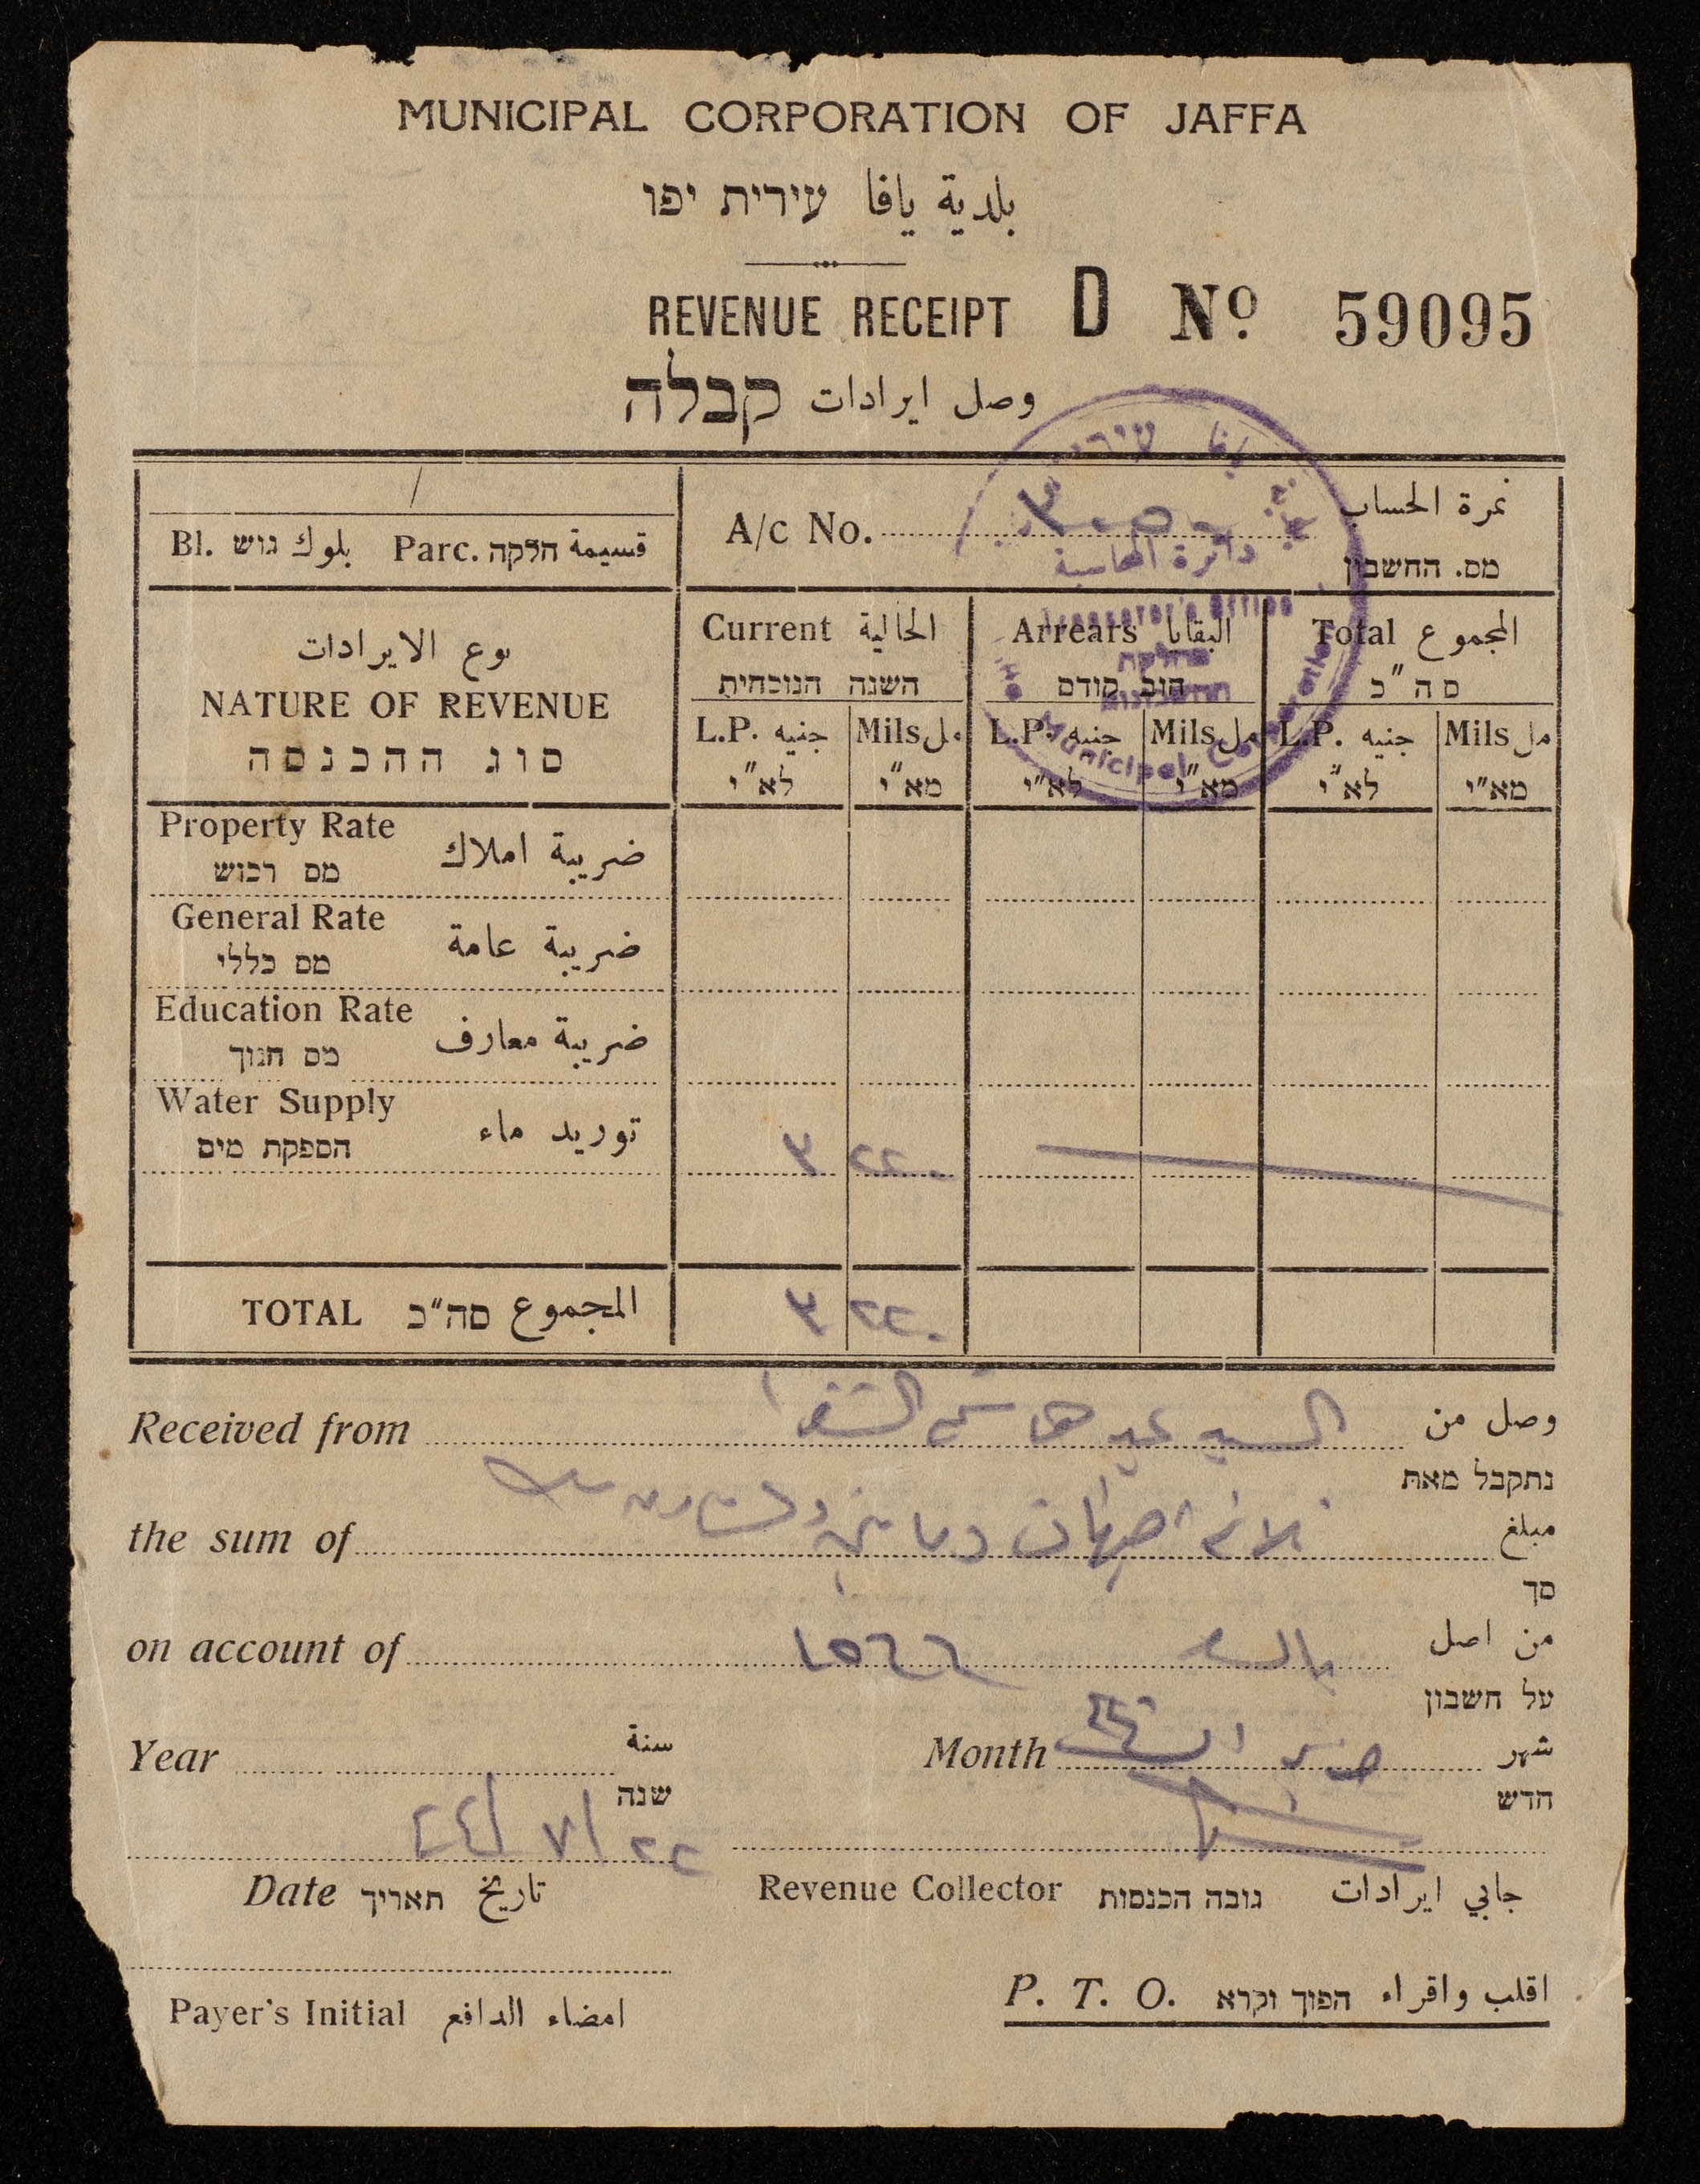 MUNICIPAL CORPORATION OF JAFFA
بلدية يافا עירית יפו
REVENUE RECEIPT D No 59095
وصل ايرادات קבלה
/
Bl. بلوك גוש Parc. قسيمة חלקה
A/c No. نمرة الحساب
מס. החשבון
دائرة المحاسبة
Treasurer's Office
מחלקת
החשבונות
Municipal Corporation
نوع الايرادات
NATURE OF REVENUE
סוג ההכנסה
Current الحالية Arrears البقايا Total المجموع
השנה הנוכחית חוב קודם סה"כ
L.P. جنيه Mils مل L.P. جنيه Mils مل L.P. جنيه Mils مل
לא"י מא"י לא"י מא"י לא"י מא"י
Property Rate ضريبة املاك
מס רכוש
General Rate ضريبة عامة
מס כללי
Education Rate ضريبة معارف
מס חנוך
Water Supply توريد ماء
הספקת מים
٣ ٢٢٠
TOTAL סה"כ المجموع ٣ ٢٢٠
Received from السيد وصل من
נתקבל מאת
the sum of مبلغ
סך
on account of من اصل
על חשבון
Year سنة
שנה
Month شهر
חדש
٢٢/٧/٤٤
Date תאריך تاريخ
Revenue Collector גובה הכנסות جابي ايرادات
Payer's Initial امضاء الدافع
P. T. O. הפוך וקרא اقلب واقراء